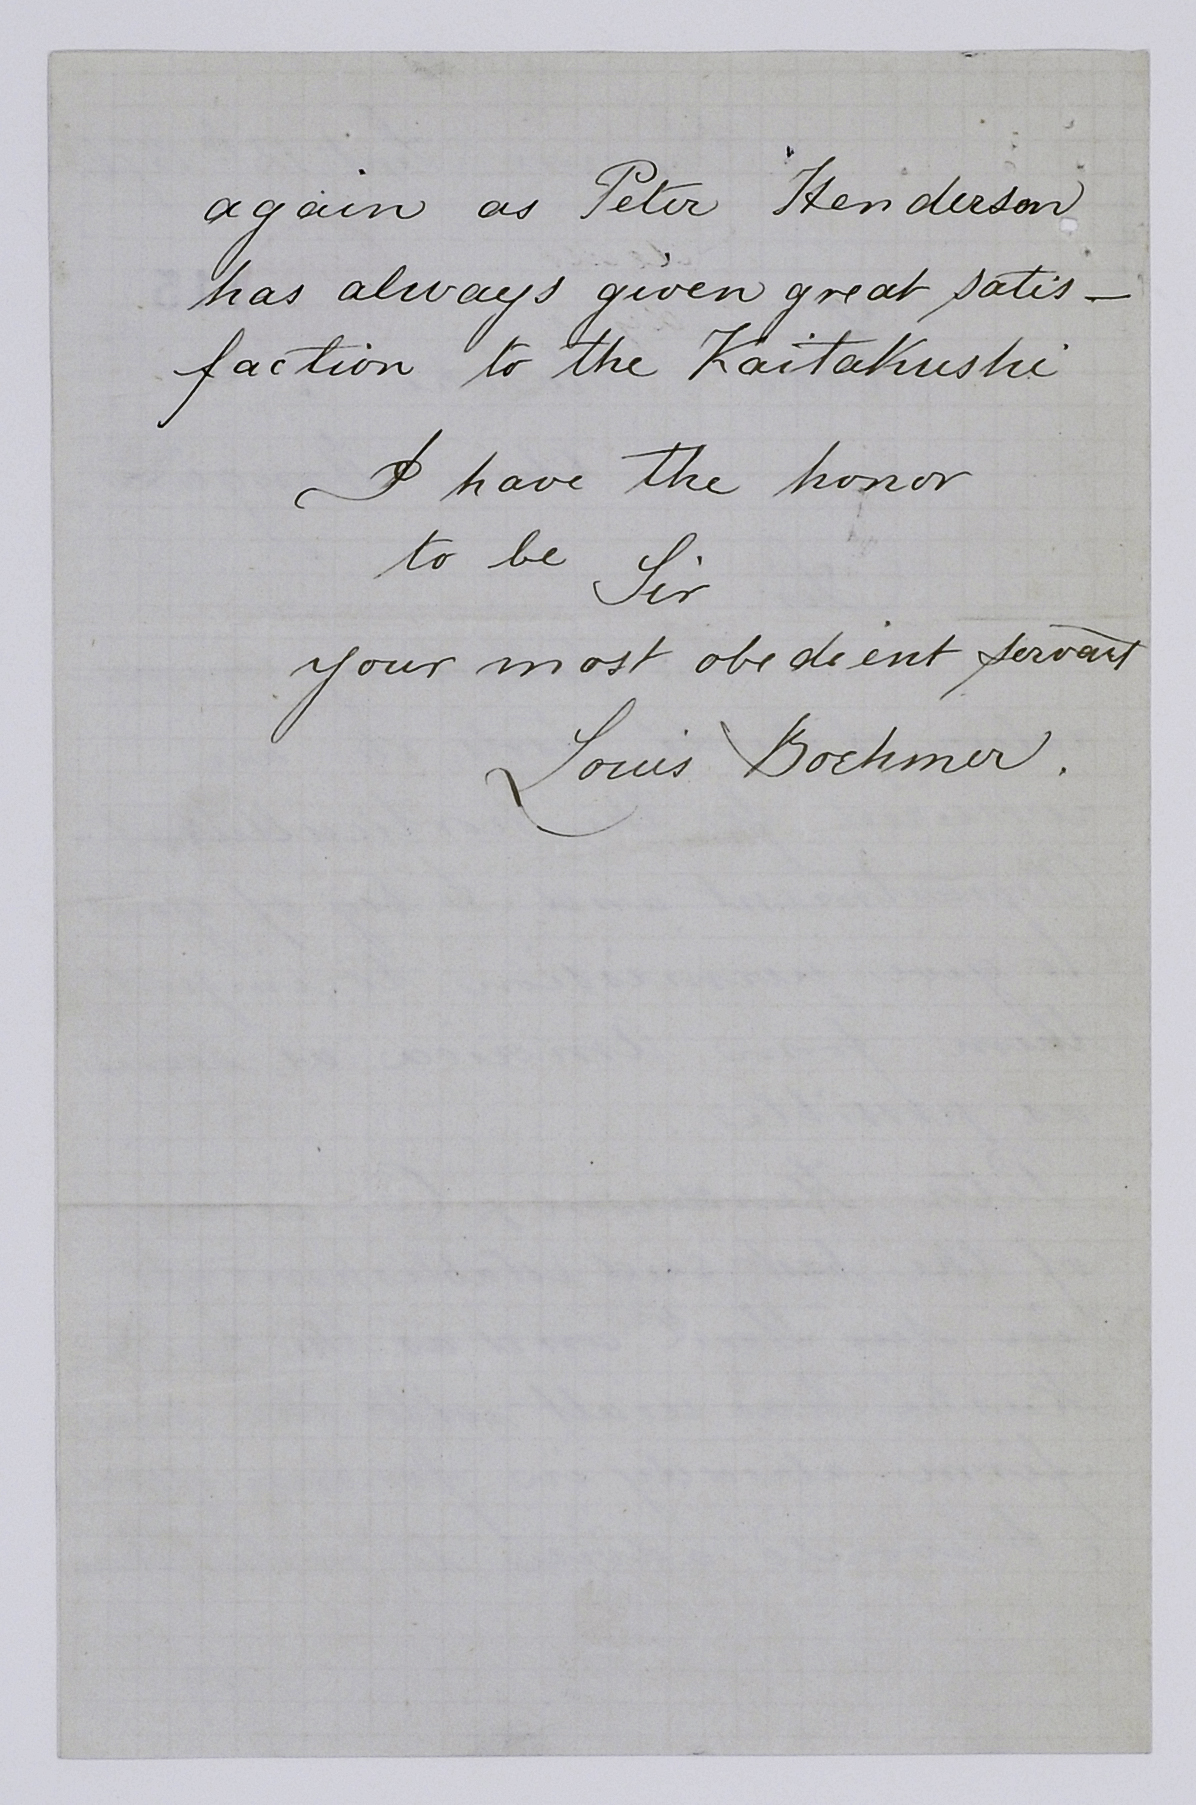 again as Peter Henderson
has always given great satis-
faction to the Kaitakushi
I have the honor
to be Sir
your most obedient servant
Louis Boehmer.